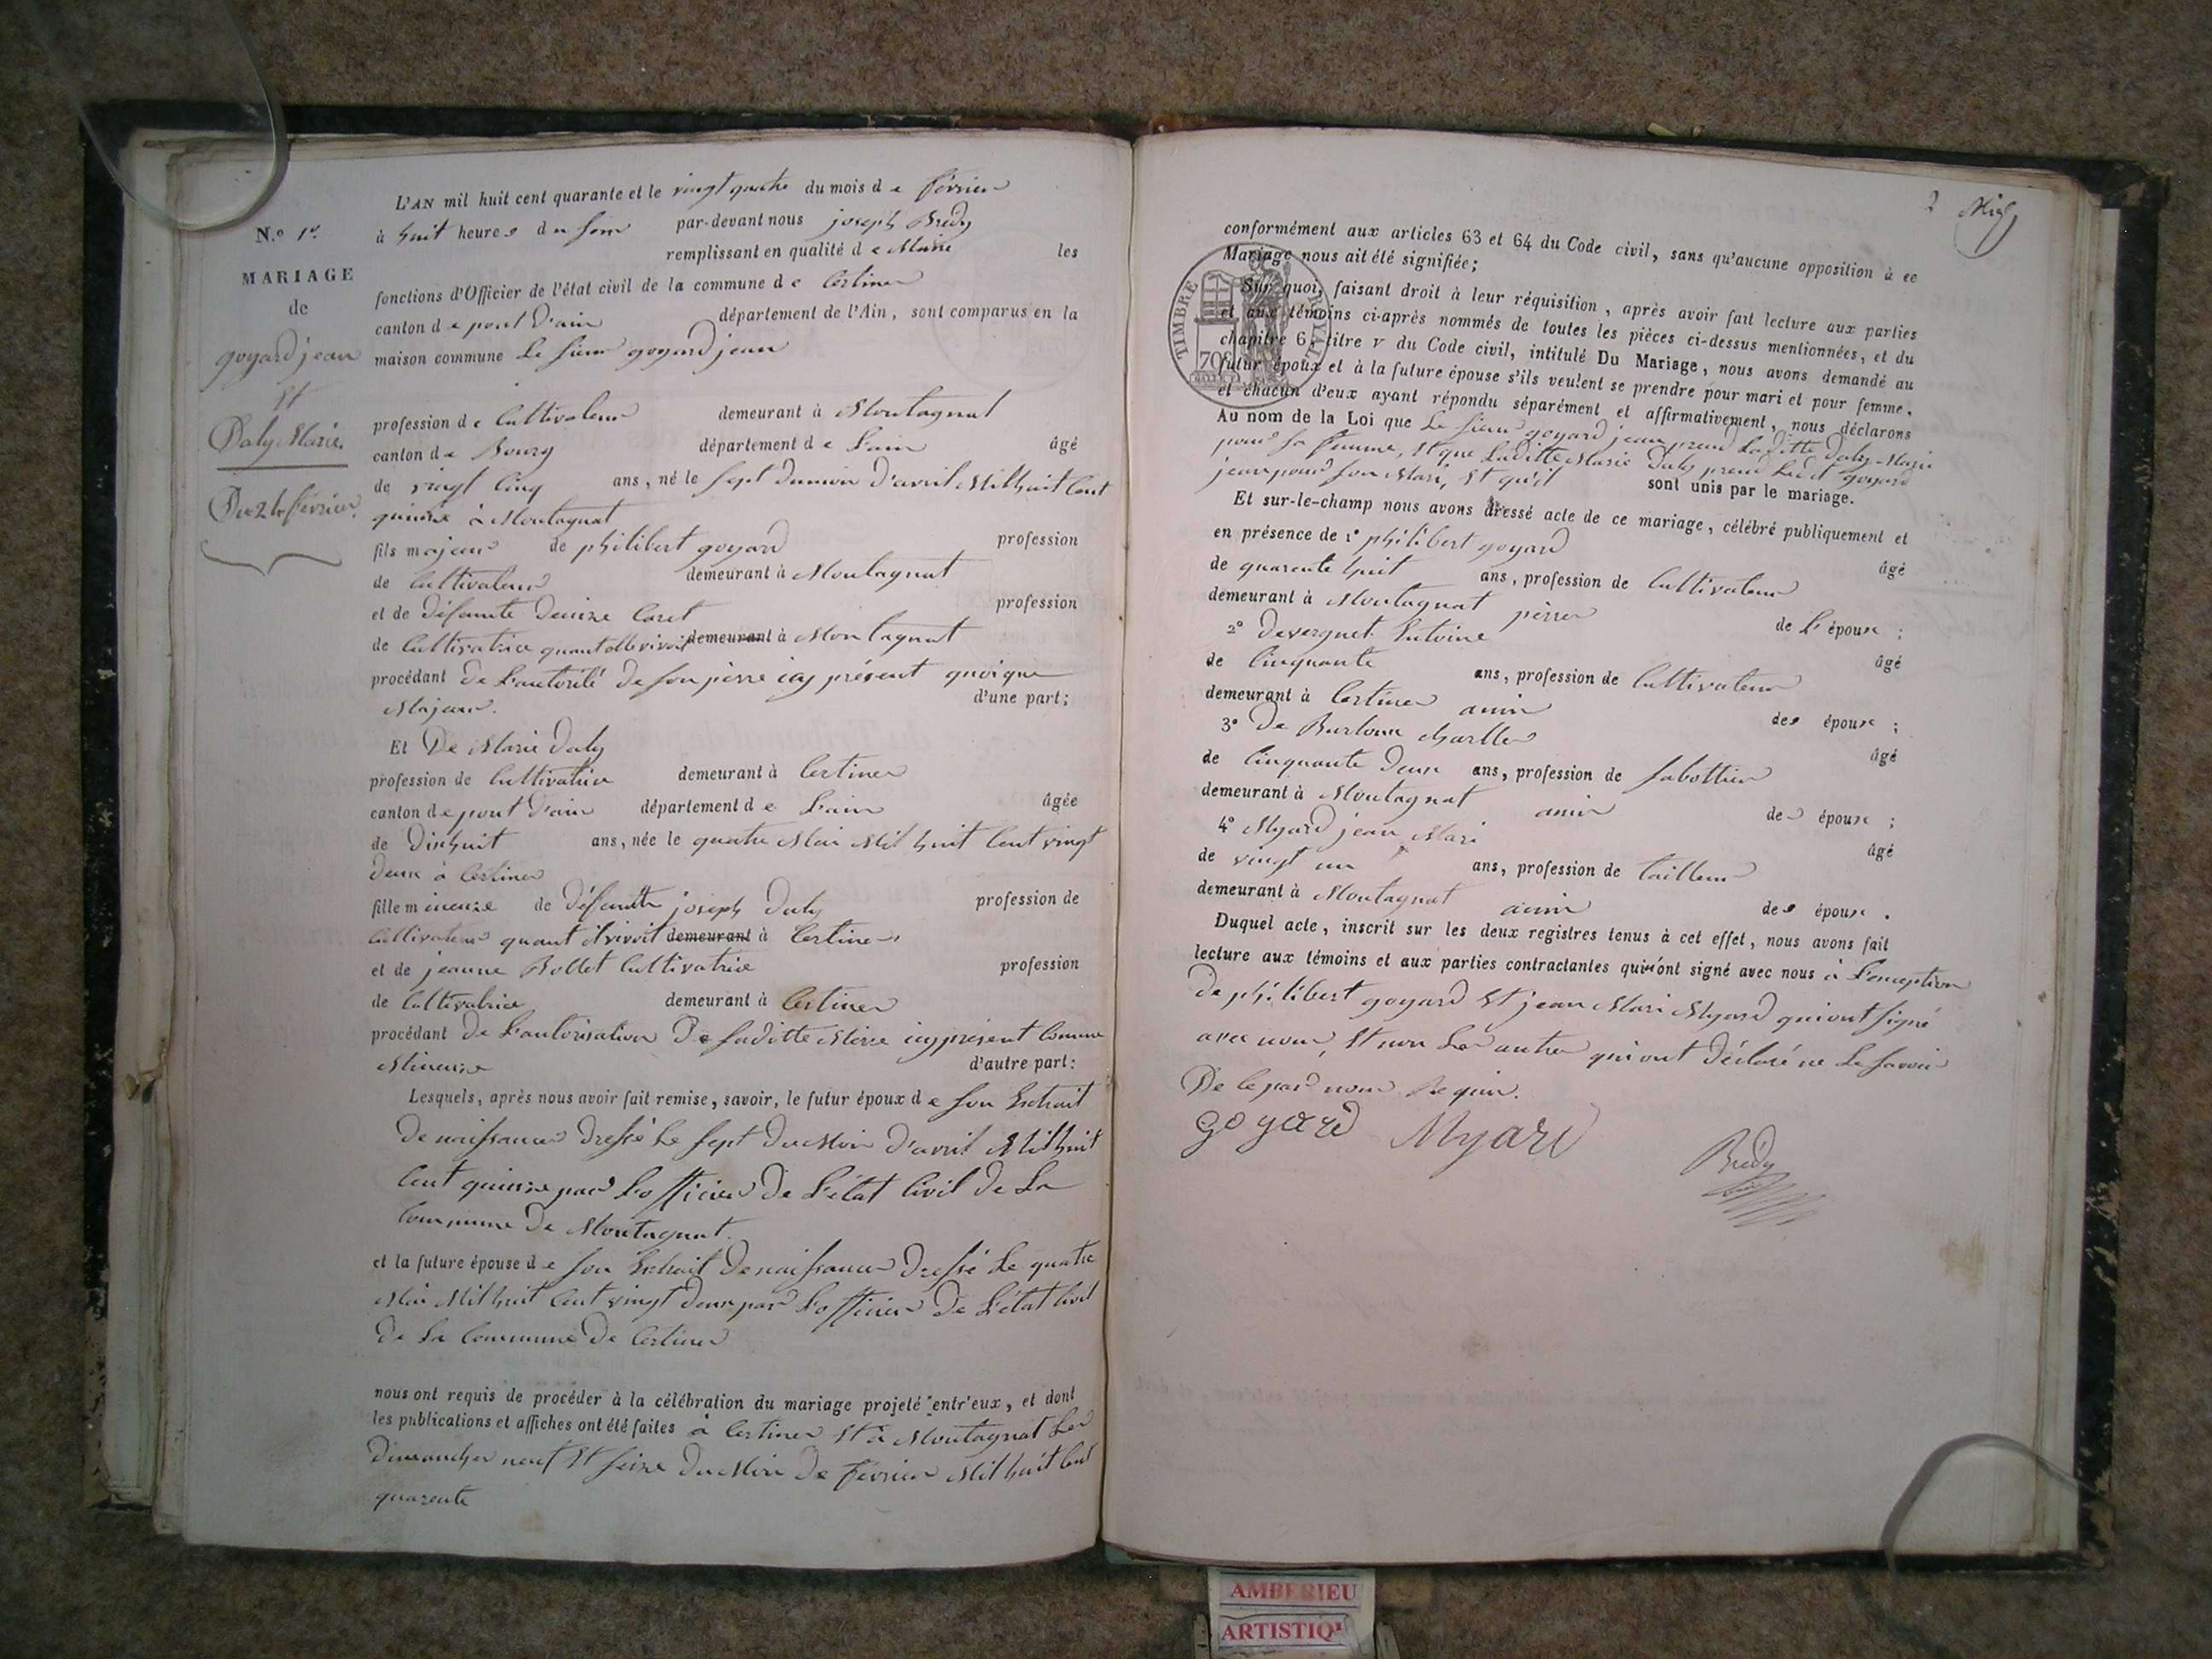 N.º 1er.
MARIAGE
de
goyard jean
Et
Daly Marie.
Du 24 février.
L'AN mil huit cent quarante et le vingt quatre du mois de février
à huit heures du soir par-devant nous joseph Bredy
remplissant en qualité de Maire les
fonctions d'Officier de l'état civil de la commune de Certines
canton de pont d'ain département de l'Ain, sont comparus en la
maison commune Le sieur goyard jean
profession de Cultivateur demeurant à Montagnat
canton de Bourg département de L'ain âgé
de vingt Cinq ans, né le sept du mois d'avril Mil huit Cent
quinze à Montagnat
fils majeur de philibert goyard profession
de Cultivateur demeurant à Montagnat
et de défunte Denize Caret profession
de Cultivatrice quant elle vivoit demeurant à Montagnat
procédant De L'autorité De son père icy présent quoique
Majeur. d'une part;
Et De Marie Daly
profession de Cultivatrice demeurant à Certines
canton de pont d'ain département de L'ain âgée
de Dixhuit ans, née le quatre Mai Mil huit Cent vingt
Deux à Certines
fille mineure de Défunt joseph Daly profession de
Cultivateur quant il vivoit demeurant à Certines
et de jeanne Bollet Cultivatrice profession
de Cultivatrice demeurant à Certines
procédant De L'autorisation De sa ditte Mère icy présent Comme
Mineure d'autre part:
Lesquels, après nous avoir fait remise, savoir, le futur époux de son Extrait
De naissance Dressé Le sept Du Mois D'avril Mil huit
Cent quinze par L'officier De L'état Civil De La
Commune De Montagnat.
et la future épouse de son Extrait De naissance Dressé Le quatre
Mai Mil huit Cent vingt Deux par L'officier De L'état Civil
De La Commune De Certines
nous ont requis de procéder à la célébration du mariage projeté entr'eux, et dont
les publications et affiches ont été faites à Certines Et à Montagnat Les
Dimanches neuf Et seize Du Mois De février Mil huit Cent
quarente
2
conformément aux articles 63 et 64 du Code civil, sans qu'aucune opposition à ce
Mariage nous ait été signifiée;
Sur quoi, faisant droit à leur réquisition, après avoir fait lecture aux parties
et aux témoins ci-après nommés de toutes les pièces ci-dessus mentionnées, et du
chapitre 6, titre v du Code civil, intitulé Du Mariage, nous avons demandé au
futur époux et à la future épouse s'ils veulent se prendre pour mari et pour femme,
et chacun d'eux ayant répondu séparément et affirmativement, nous déclarons
TIMBRE ROYAL
70c
Au nom de la Loi que Le sieur goyard jean prend La ditte Daly Marie
pour sa femme, Et que Laditte Marie Daly prend Ledit goyard
jean pour son Mari, Et qu'il sont unis par le mariage.
Et sur-le-champ nous avons dressé acte de ce mariage, célébré publiquement et
en présence de 1º philibert goyard âgé
de quarente huit ans, profession de Cultivateur
demeurant à Montagnat père de L'époux ;
2º Devergnet Entoine âgé
de Cinquante ans, profession de Cultivateur
demeurant à Certines amis des époux ;
3º De Burloux Charlles âgé
de Cinquante Deux ans, profession de sabottier
demeurant à Montagnat amis des époux ;
4º Myard jean Mari âgé
de vingt un ans, profession de tailleur
demeurant à Montagnat amis des époux .
Duquel acte, inscrit sur les deux registres tenus à cet effet, nous avons fait
lecture aux témoins et aux parties contractantes qui ont signé avec nous à L'exception
De philibert goyard Et jean Mari Myard qui ont signé
avec nous, Et non Les autres qui ont Déclaré ne Le savoir
De Ce par nous Requis.
goyard Myard Bredy
AMBERIEU
ARTISTIQ